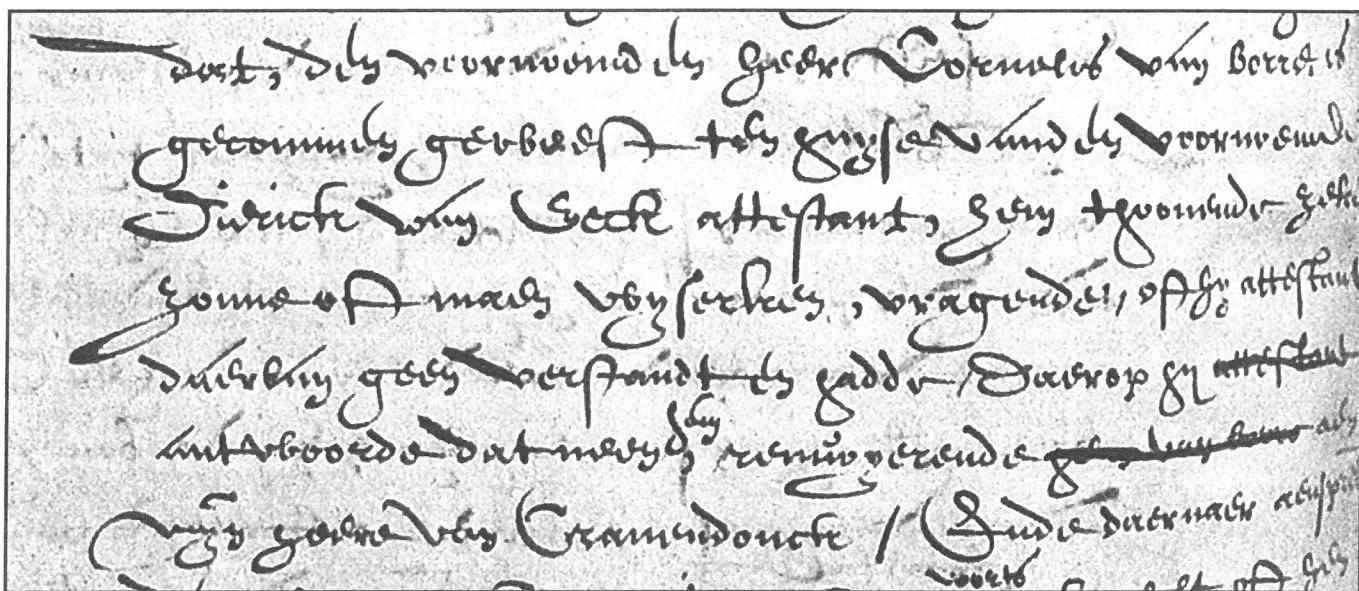 dat, den voornoemden heer Cornelis van Borre is
gecommen geweest ten huyse vanden voornoemde
Dierick van Beeck attestant, hem thoonende
zonne oft maen wyserken, vragende, oft hy attestant
daervan geen verstandt en hadde, Daerop hy attestant
antwoorde dat neen hem renuoyerende aen
myn heere van Cranendonck / Ende daernaer
voorts oft hem